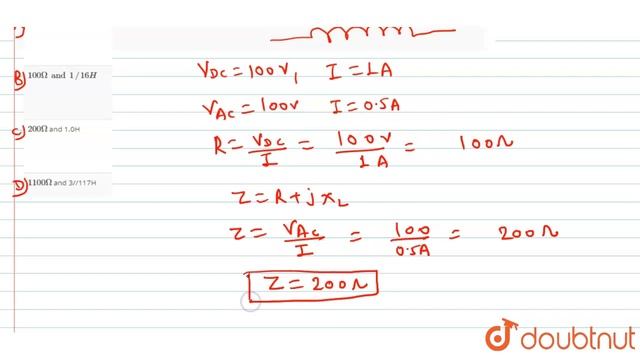 B) 100Ω and 1/16H
C) 200Ω and 1.0H
D) 1100Ω and 3//117H
V_DC = 100V, I = 1A
V_AC = 100V I = 0.5A
R = V_DC/I = 100V/1A = 100Ω
Z = R + jX_L
Z = V_AC/I = 100/0.5A = 200Ω
Z = 200Ω
doubtnut